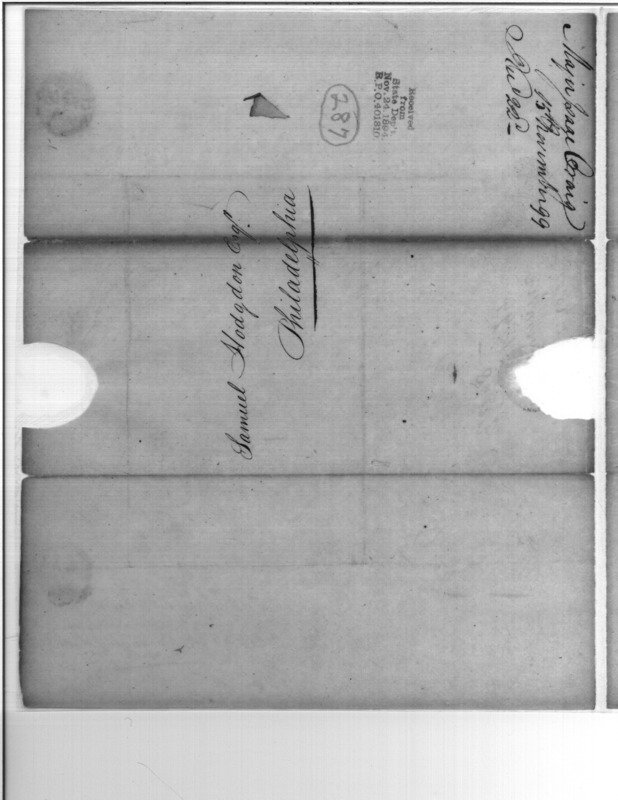 Major Isaac Craig
15th November 99
Recd 22d
Received
from
State Dep't.
Nov. 24. 1894.
R.P.O. 401810.
287
Samuel Hodgdon Esqr.
Philadelphia